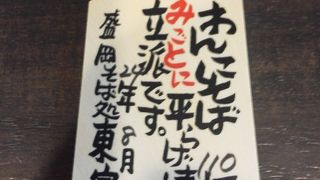 わんこそば 110
みごとに平らげ
立派です。
24年8月
盛岡そば処東家